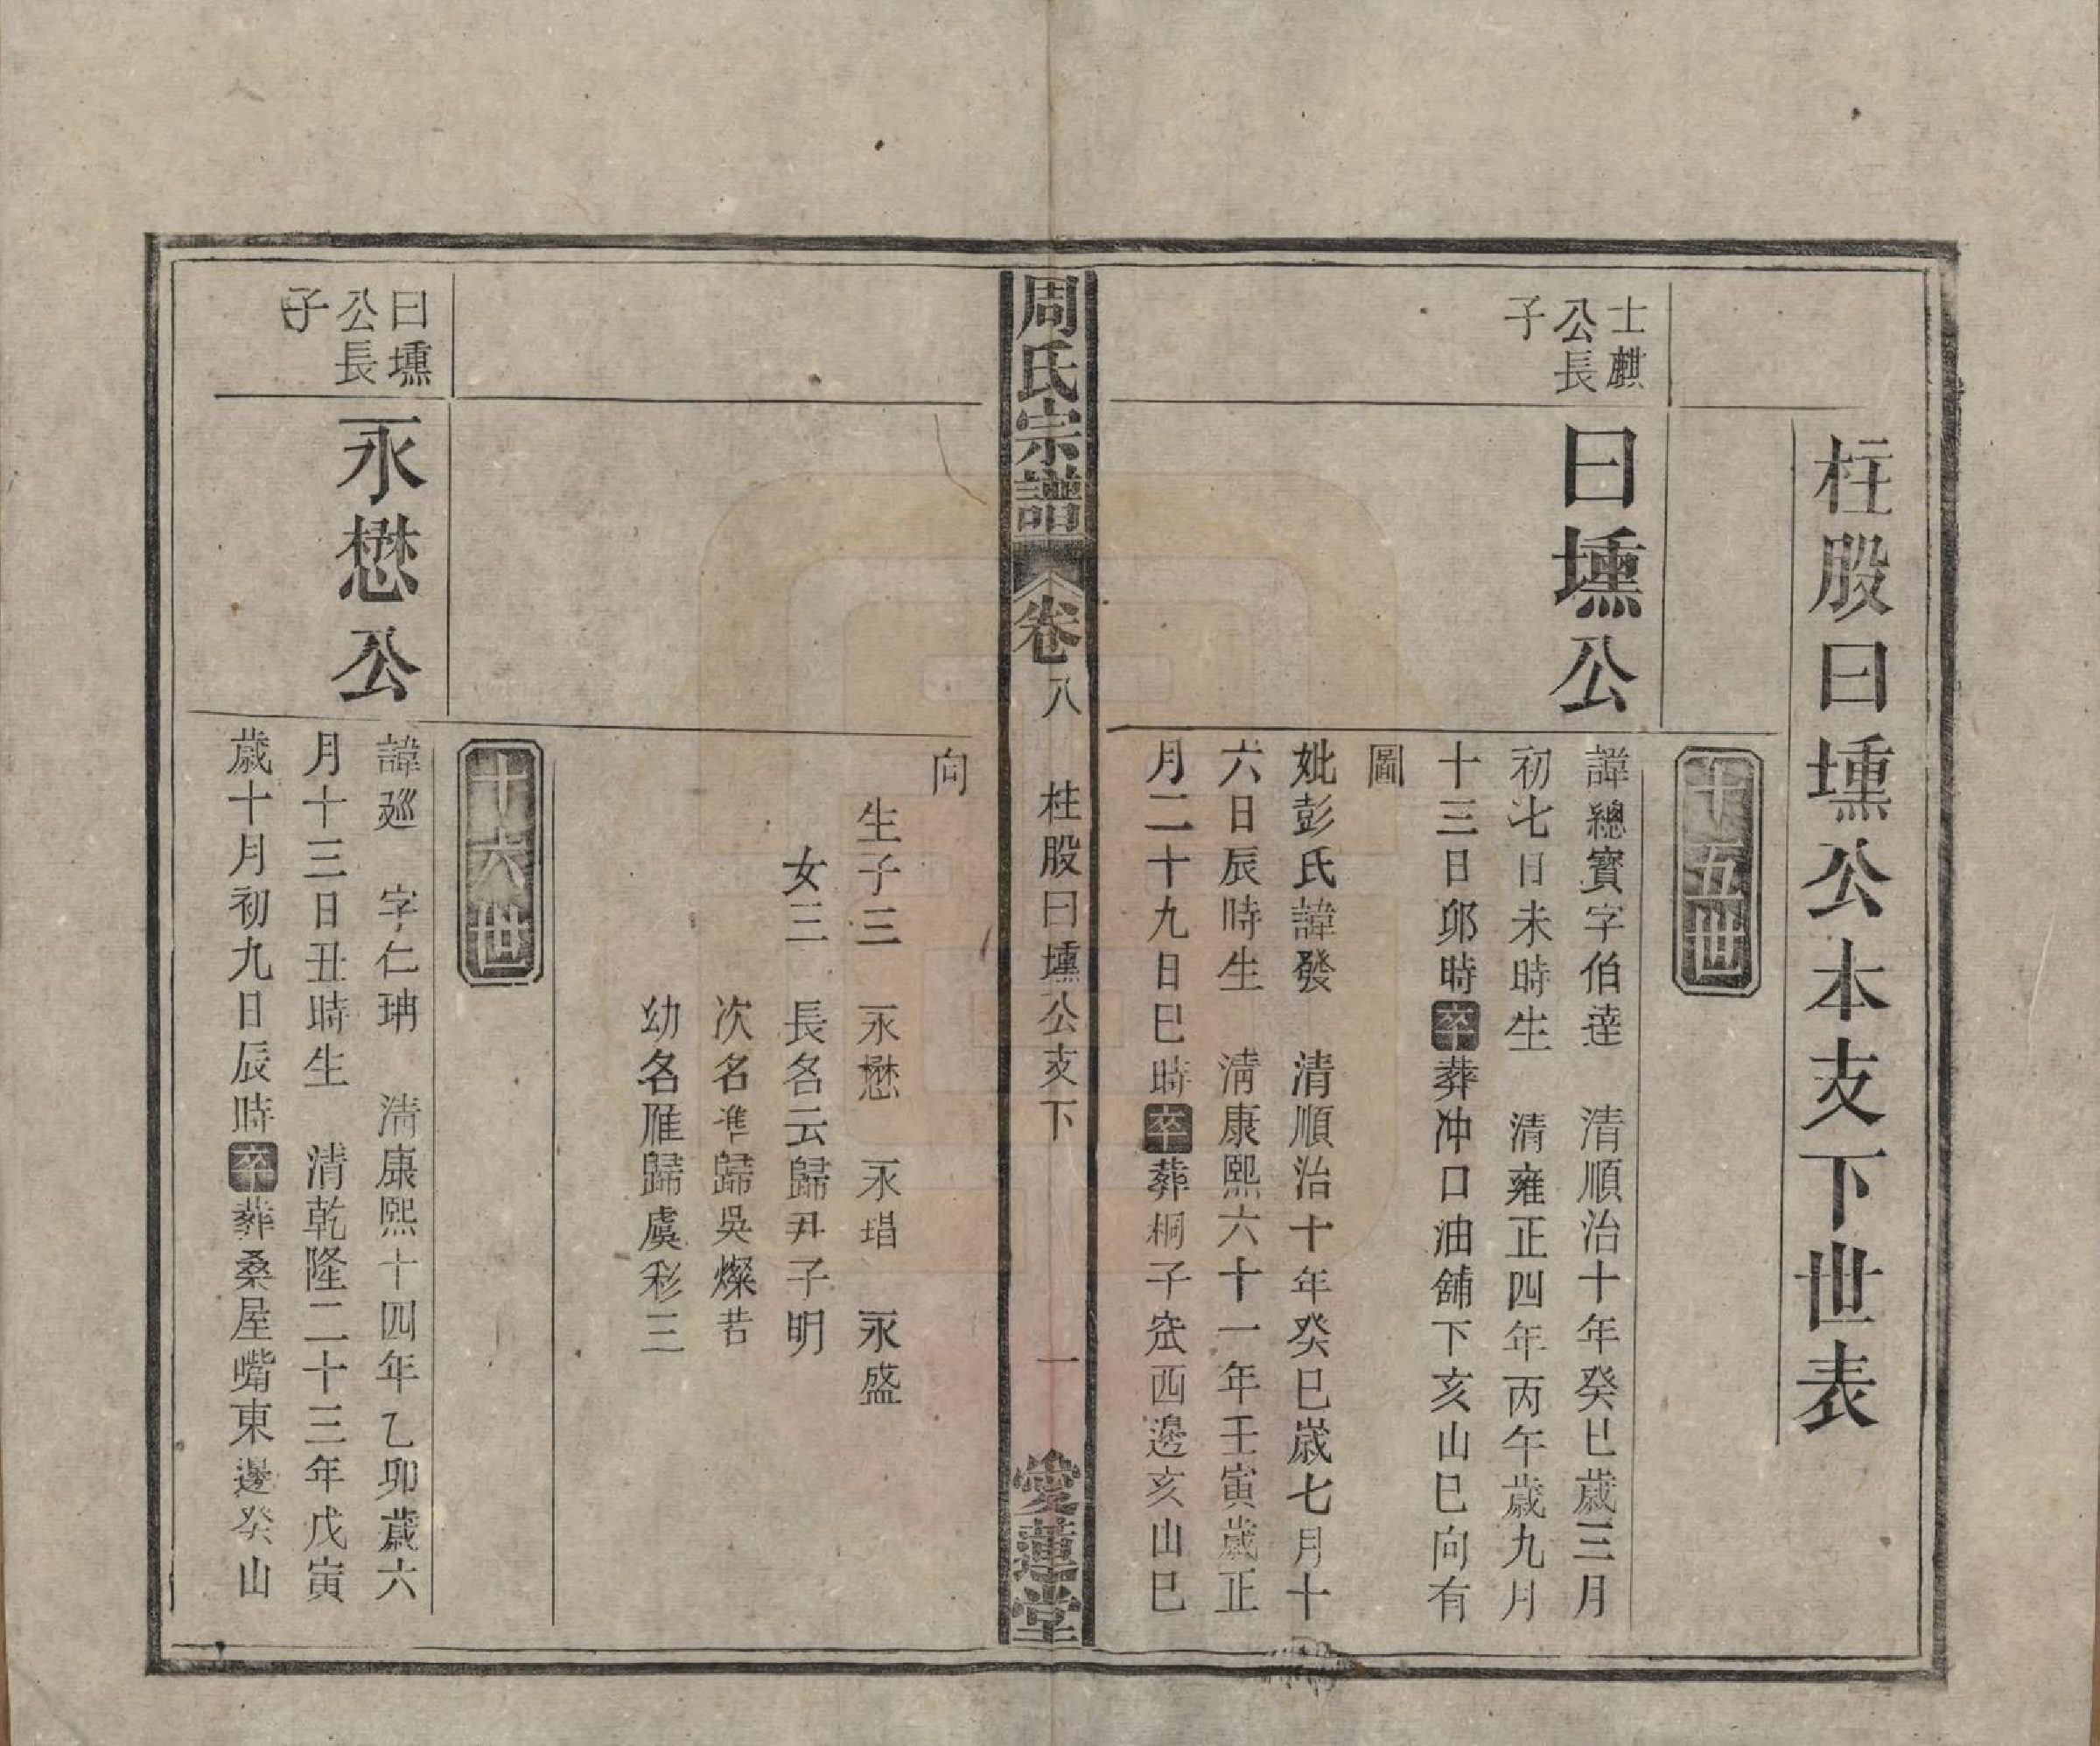 柱股曰壎公本支下世表
十五世
士麒
公長
子
曰壎公
諱總寳字伯達　清順治十年癸巳歲三月
初七日未時生　清雍正四年丙午歲九月
十三日卯時卒葬冲口油舖下亥山巳向有
圖
妣彭氏諱發　清順治十年癸巳歲七月十
六日辰時生　清康熙六十一年壬寅歲正
月二十九日巳時卒葬桐子窊西邊亥山巳
周氏宗譜　卷八　柱股曰壎公支下　一　愛蓮堂
向
生子三　永懋　永琩　永盛
女三　長名云歸尹子明
次名準歸吳燦若
幼名雁歸虞彩三
十六世
曰壎
公長
子
永懋公
諱廵　字仁珃　清康熙十四年乙卯歲六
月十三日丑時生　清乾隆二十三年戊寅
歲十月初九日辰時卒葬桑屋嘴東邊癸山